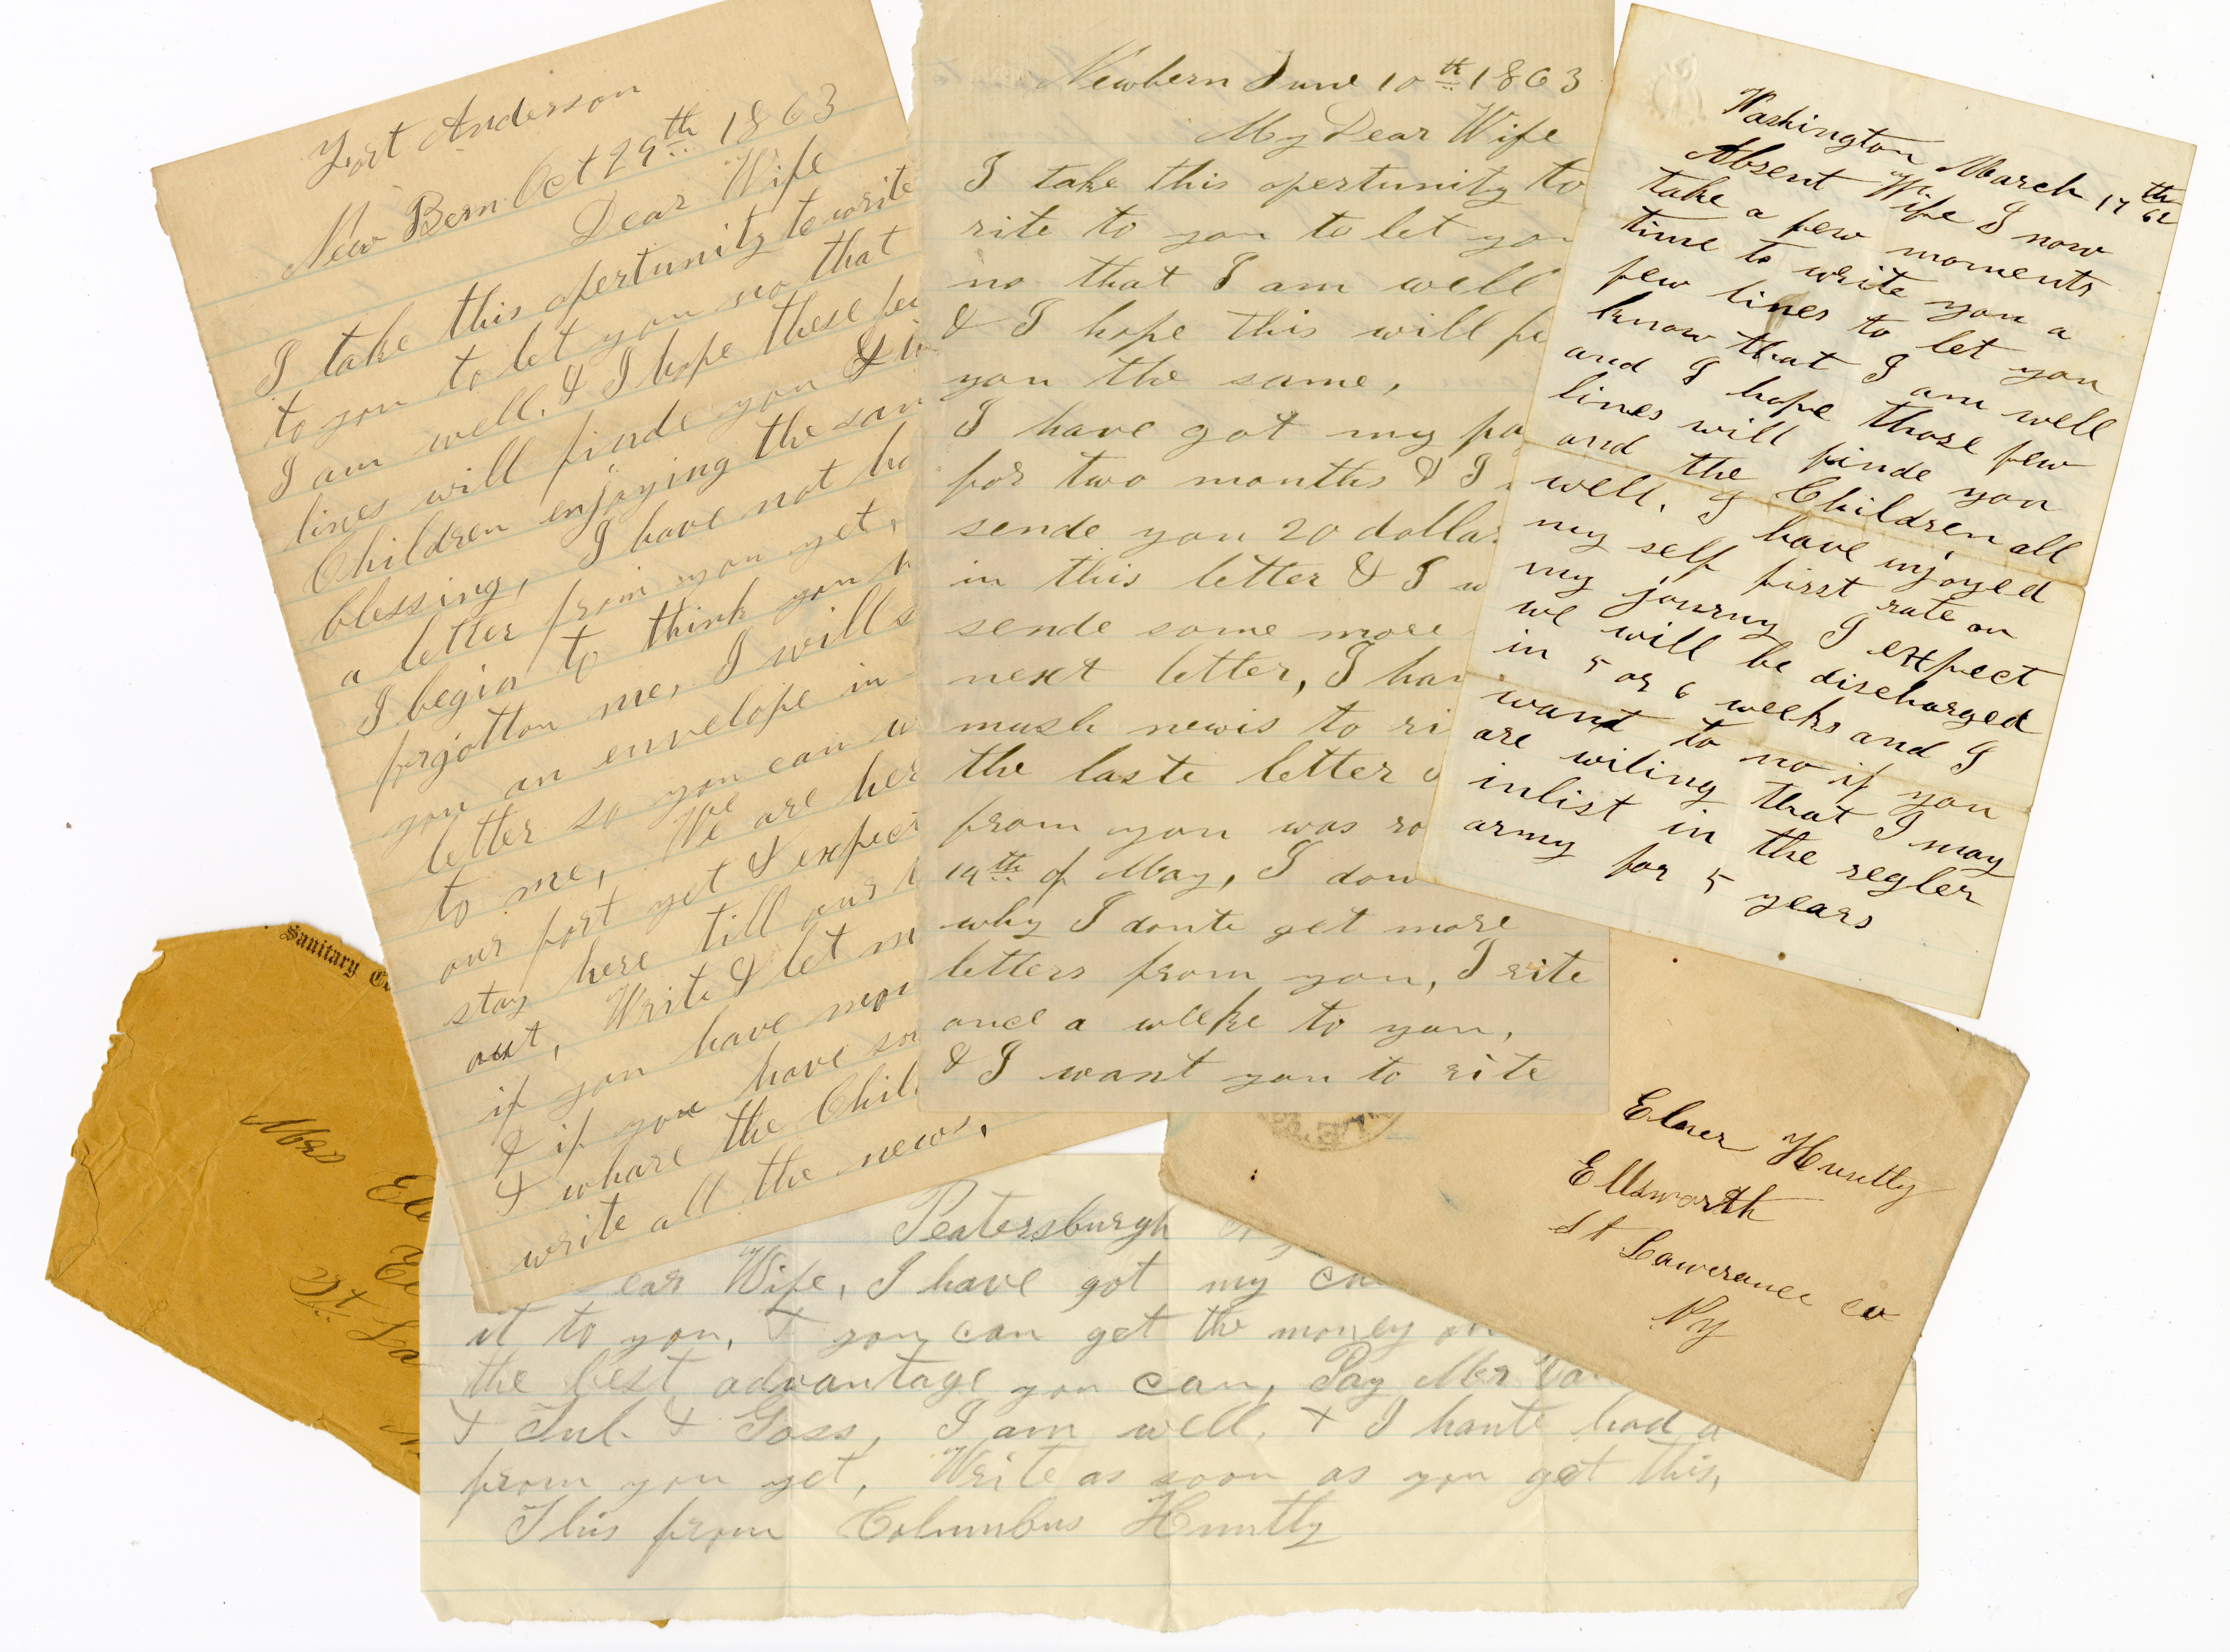 Fort Anderson
New Bern Oct 29th 1863
Dear Wife
I take this opertunity to write
to you to let you no that
I am well. & I hope these
lines will finde you &
Children enjoying the
blessing, I have not
a letter from you yet,
I begin to think you
forgotton me, I will
you an envelope in
letter so you can
to me, We are
our fort yet & expect
stay here till our
out, Write & let
if you have
& if you have
& whare the
write all the news,
Newbern June 10th 1863
My Dear Wife
I take this opertunity to
rite to you to let you
no that I am well
& I hope this will
you the same,
I have got my
for two months & I
sende you 20
in this letter & I
sende some more
next letter, I
mush newis to
the laste letter
from you was
19th of May, I
why I donte get more
letters from you, I rite
once a weeke to you,
& I want you to rite
Washington March 17th 62
Absent Wife I now
take a few moments
time to write you a
few lines to let you
know that I am well
and I hope those few
lines will finde you
and the Children all
well. I have injoyed
my self first rate on
my journy I expect
we will be discharged
in 5 or 6 weeks and I
want to no if you
are wiling that I may
inlist in the regler
army for 5 years
Sanitary
Mrs
St.
Elner Huntly
Ellsworth
St Lawerance co
Ny
Peatersburgh
Wife, I have got my
it to you, & you can get the money
the best advantage you can, Pay Mr
& Jul. & Goss, I am well, & I hante had a
from you yet, Write as soon as you get this,
This from Columbus Huntly